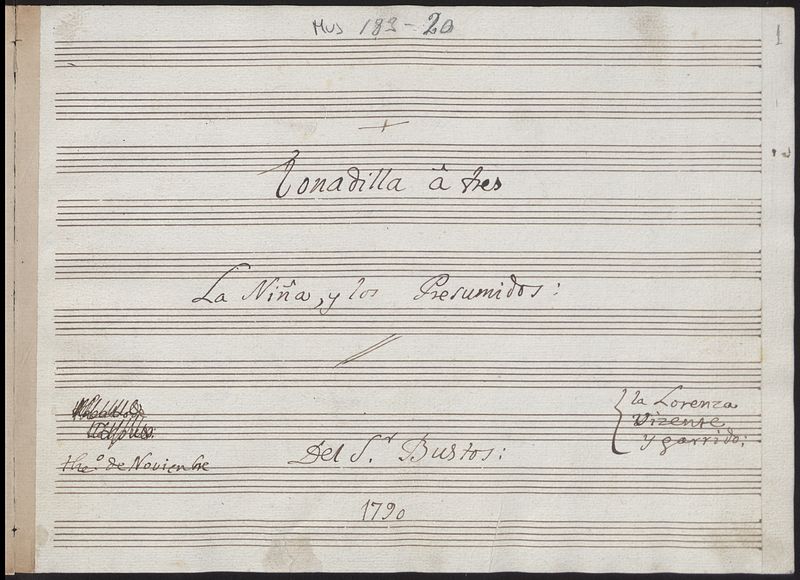 Mus 183-20
1
Tonadilla â tres
La Niña, y los Presumidos:
la Lorenza
Vizente
y garrido:
the.º de Noviembre
Del S.r Bustos:
1790